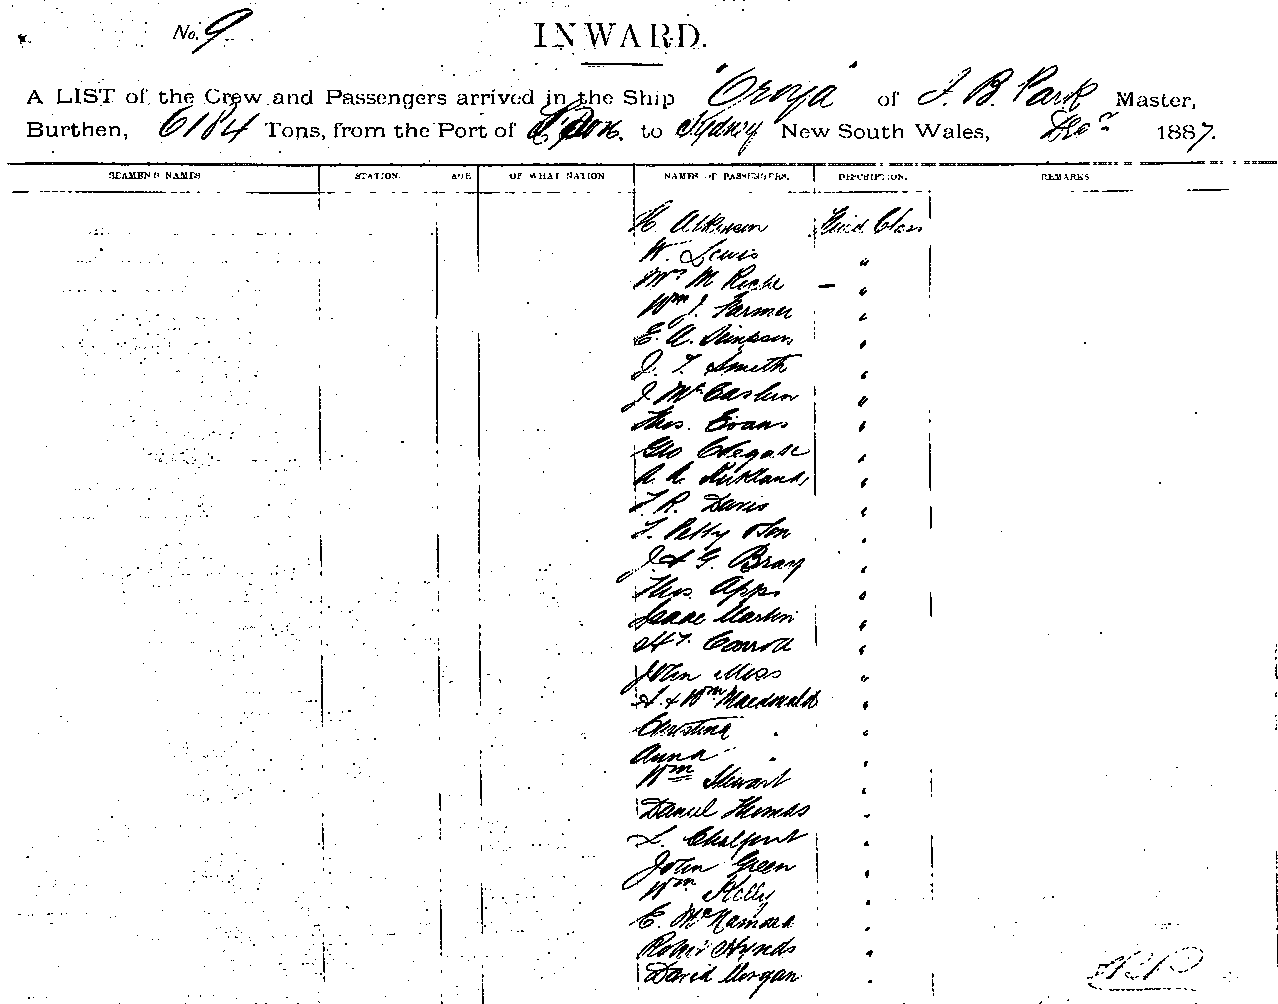 No. 9
INWARD.
A LIST of the Crew and Passengers arrived in the Ship "Oroya" of J. B. Park Master,
Burthen, 6184 Tons, from the Port of to Sydney New South Wales, Decr 1887.
SEAMEN'S NAMES STATION. AGE OF WHAT NATION NAMES OF PASSENGERS. DESCRIPTION. REMARKS
H. Atkinson Third Class
W. Lewis "
Mrs M "
Wm J. Farmer "
E. A. Simpson "
J. T. Smith "
J McCaslin "
Thos. Evans "
Geo "
A. A. Kirkland "
F. R. Davis "
F. Petty "
J & G Bray "
Thos Apps "
Isaac Martin "
Conroll "
John Moss "
A. & Wm Macdonald "
Christina " "
Anna " "
Wm Stewart "
Daniel Thomas "
L. Chalfont "
John Green "
Wm Kelly "
E. McNamara "
Robt Hynds "
David Morgan "